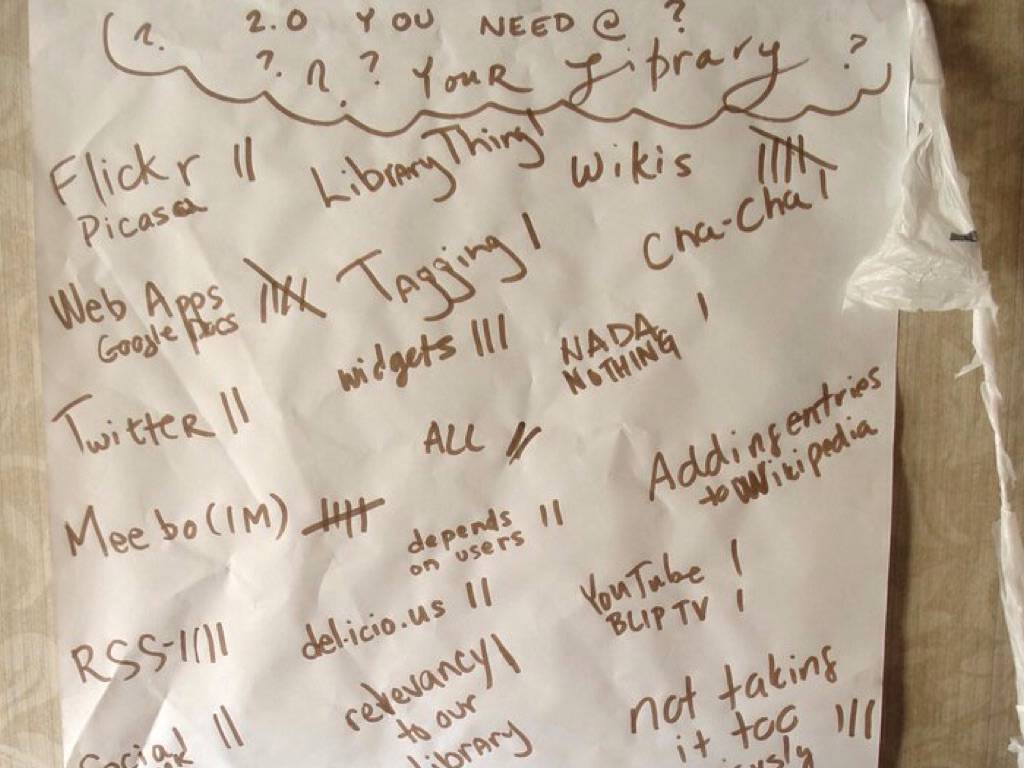 ?. 2.0 YOU NEED @ ?
?. ?. ? YOUR Library ?
Flickr ||
Picasa
LibraryThing |
Wikis ||||
Cha-Cha |
Web Apps ||||
Google Docs
Tagging |
widgets |||
NADA |
NOTHING
Twitter ||
ALL ||
Adding entries
to Wikipedia
Meebo (IM) ||||
depends ||
on users
YouTube |
BLIP TV |
RSS-||||
del.icio.us ||
relevancy |
to our
library
not taking
it too |||
Social ||